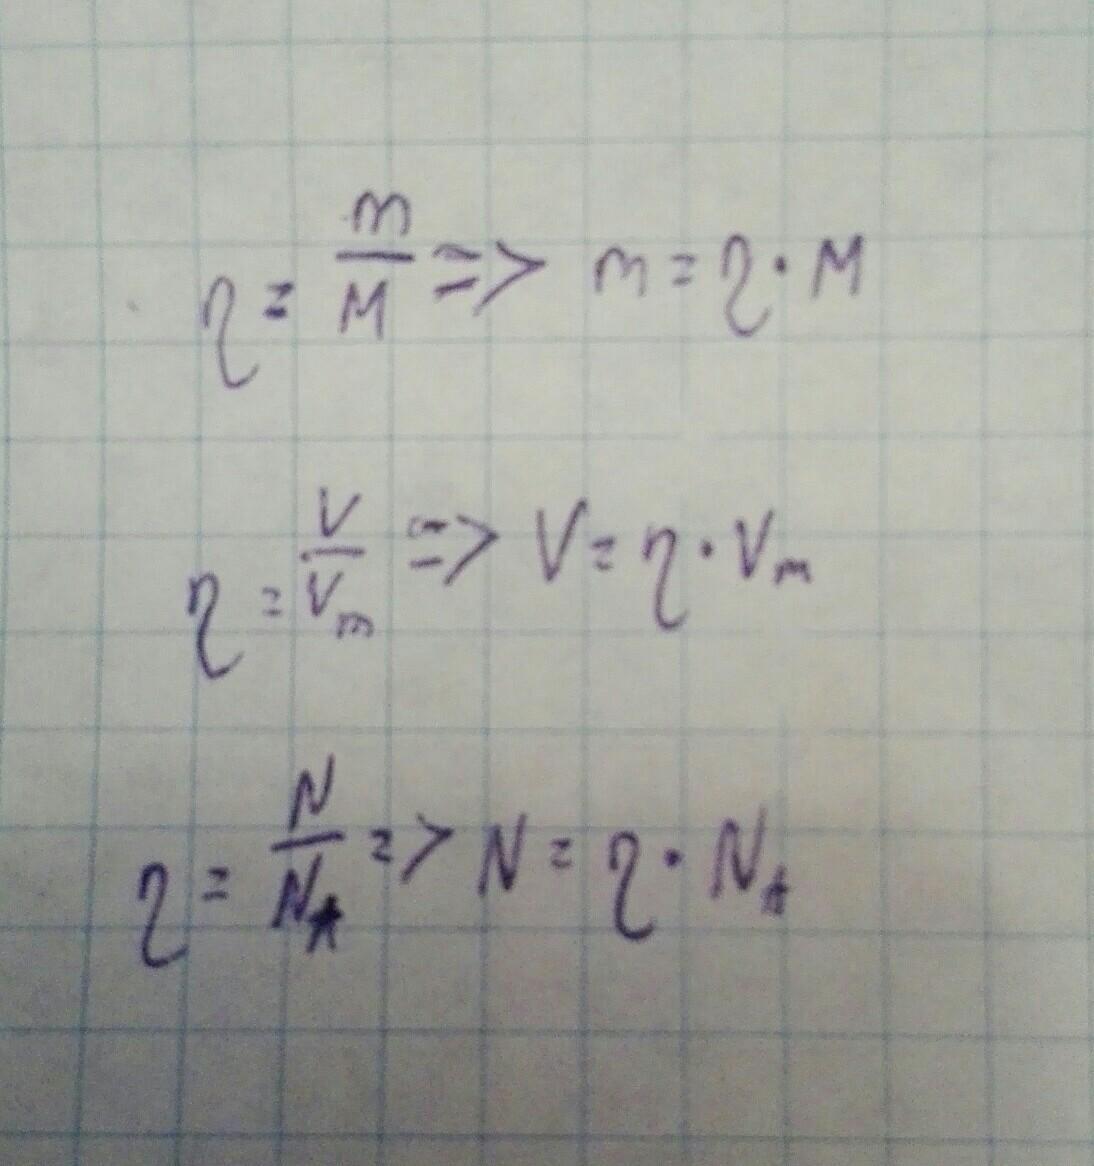 η = m/M => m = η · M
η = V/Vm => V = η · Vm
η = N/NA => N = η · NA